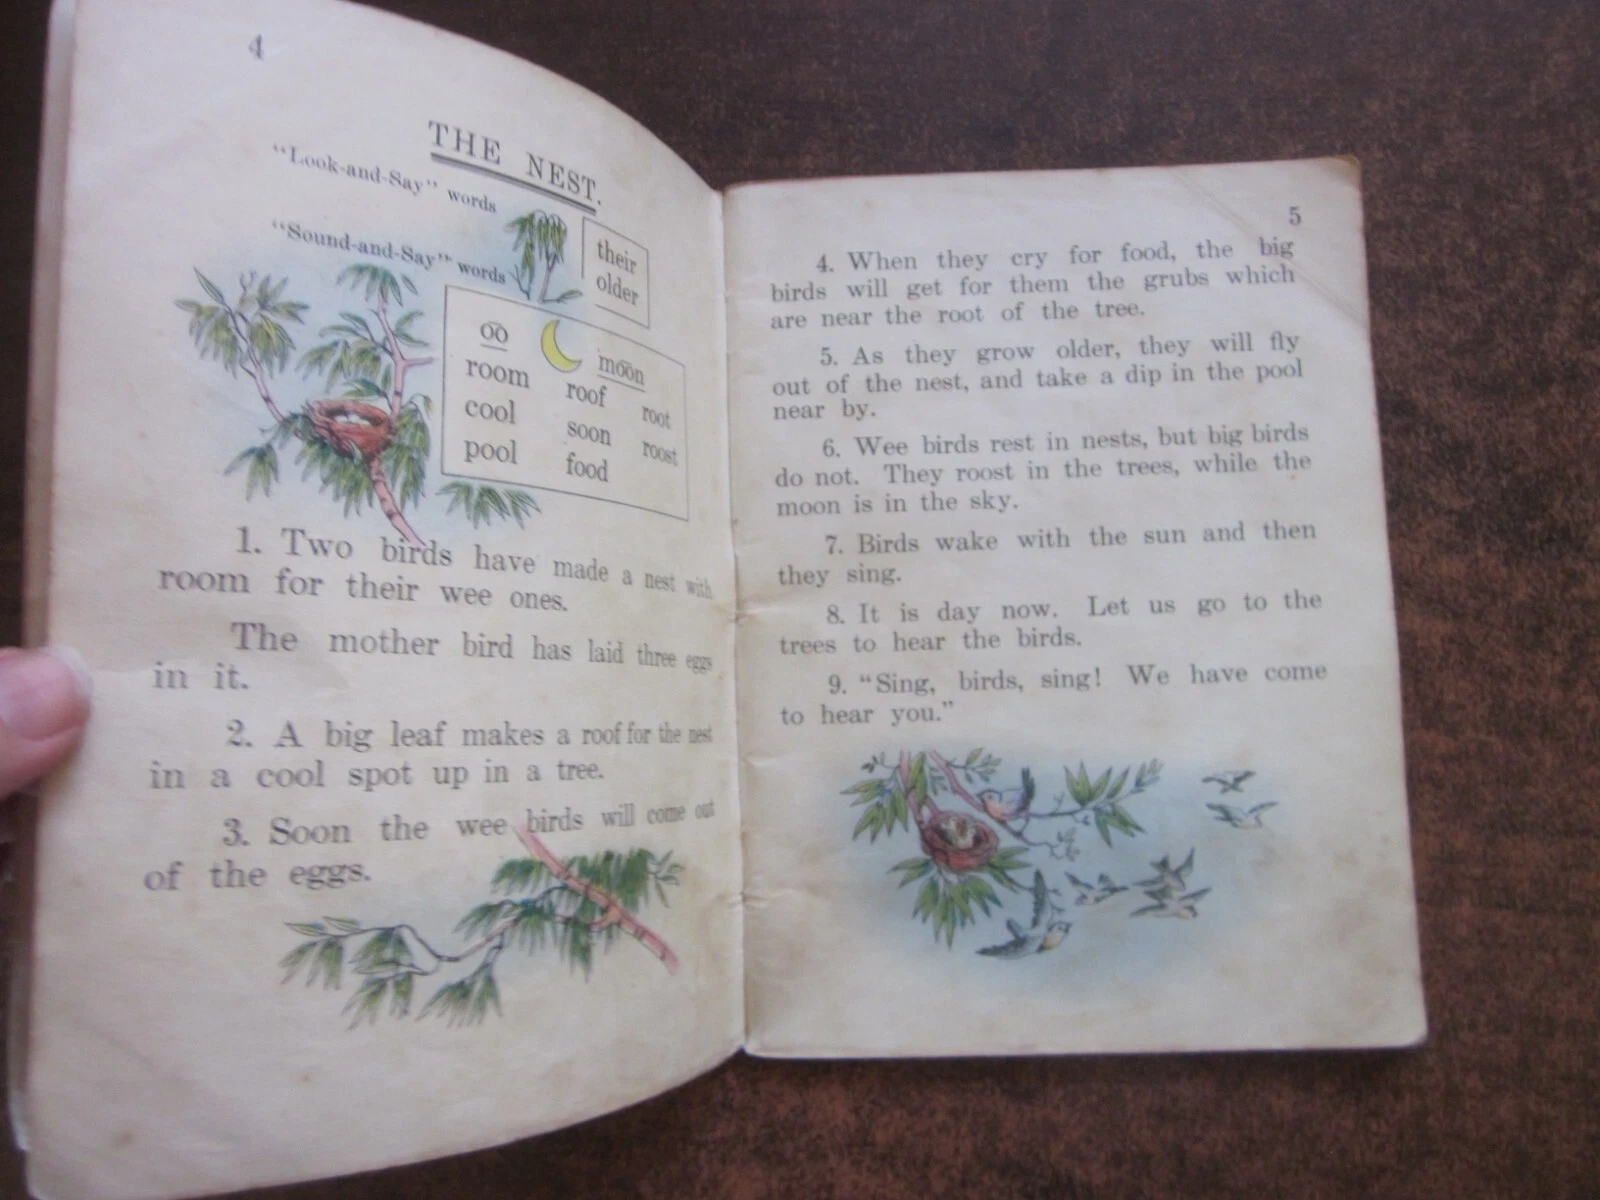 4
THE NEST.
"Look-and-Say" words
their
older
"Sound-and-Say" words
oo moon
room roof root
cool soon roost
pool food
1. Two birds have made a nest with
room for their wee ones.
The mother bird has laid three eggs
in it.
2. A big leaf makes a roof for the nest
in a cool spot up in a tree.
3. Soon the wee birds will come out
of the eggs.
5
4. When they cry for food, the big
birds will get for them the grubs which
are near the root of the tree.
5. As they grow older, they will fly
out of the nest, and take a dip in the pool
near by.
6. Wee birds rest in nests, but big birds
do not. They roost in the trees, while the
moon is in the sky.
7. Birds wake with the sun and then
they sing.
8. It is day now. Let us go to the
trees to hear the birds.
9. "Sing, birds, sing! We have come
to hear you."